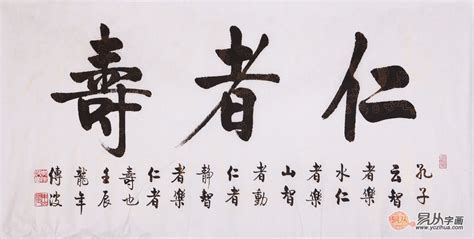 仁者壽
孔子
云智
者樂
水仁
者樂
山智
者動
仁者
靜智
者樂
仁者
壽也
壬辰
龍年
傳波
易从字画
www.yczihua.com